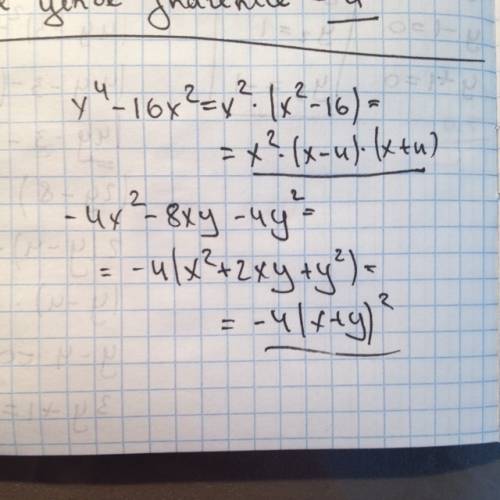 значение - 4
x⁴ - 16x² = x² · (x² - 16) =
= x² · (x - 4) · (x + 4)
- 4x² - 8xy - 4y² =
= - 4(x² + 2xy + y²) =
= - 4(x + y)²